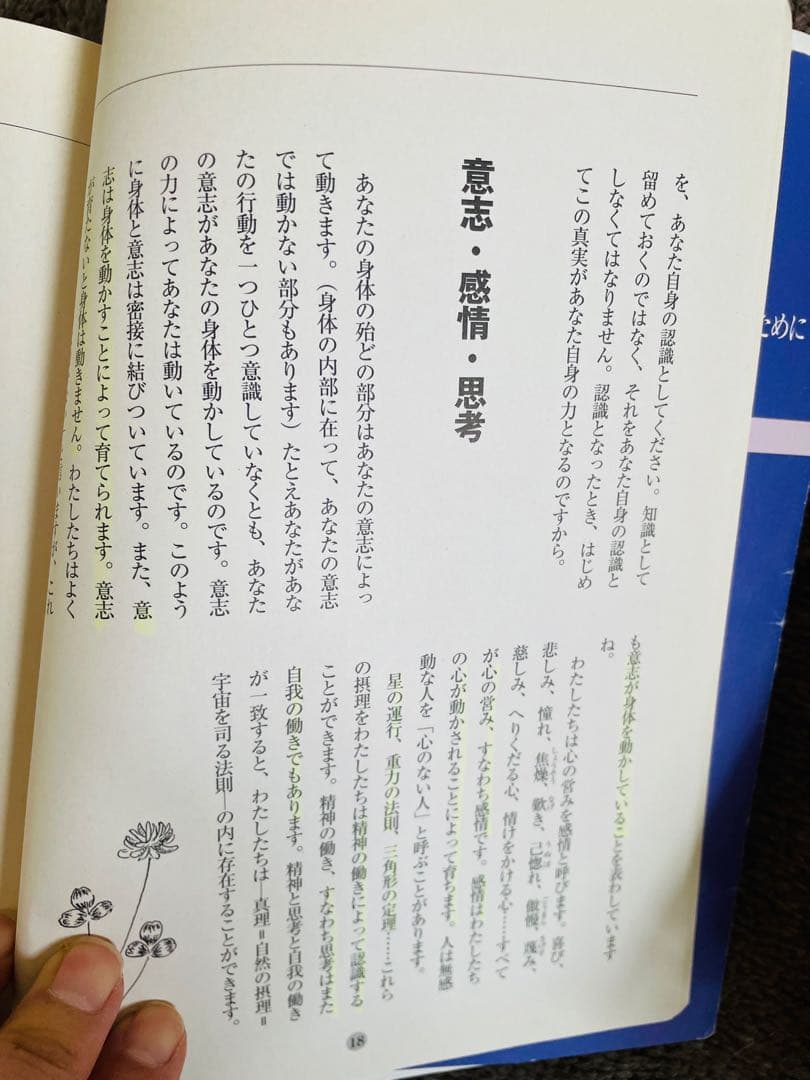 を、あなた自身の認識としてください。知識として
留めておくのではなく、それをあなた自身の認識と
しなくてはなりません。認識となったとき、はじめ
てこの真実があなた自身の力となるのですから。
意志・感情・思考
あなたの身体の殆どの部分はあなたの意志によっ
て動きます。（身体の内部に在って、あなたの意志
では動かない部分もあります）たとえあなたがあな
たの行動を一つひとつ意識していなくとも、あなた
の意志があなたの身体を動かしているのです。意志
の力によってあなたは動いているのです。このよう
に身体と意志は密接に結びついています。また、意
志は身体を動かすことによって育てられます。意志
が育たないと身体は動きません。わたしたちはよく
言いますが、これ
も意志が身体を動かしていることを表わしています
ね。
わたしたちは心の営みを感情と呼びます。喜び、
悲しみ、憧れ、焦燥、歓き、己惚れ、傲慢、蔑み、
慈しみ、へりくだる心、情けをかける心……すべて
が心の営み、すなわち感情です。感情はわたしたち
の心が動かされることによって育ちます。人は無感
動な人を「心のない人」と呼ぶことがあります。
星の運行、重力の法則、三角形の定理……これら
の摂理をわたしたちは精神の働きによって認識する
ことができます。精神の働き、すなわち思考はまた
自我の働きでもあります。精神と思考と自我の働き
が一致すると、わたしたちは―真理＝自然の摂理＝
宇宙を司る法則―の内に存在することができます。
18
ために